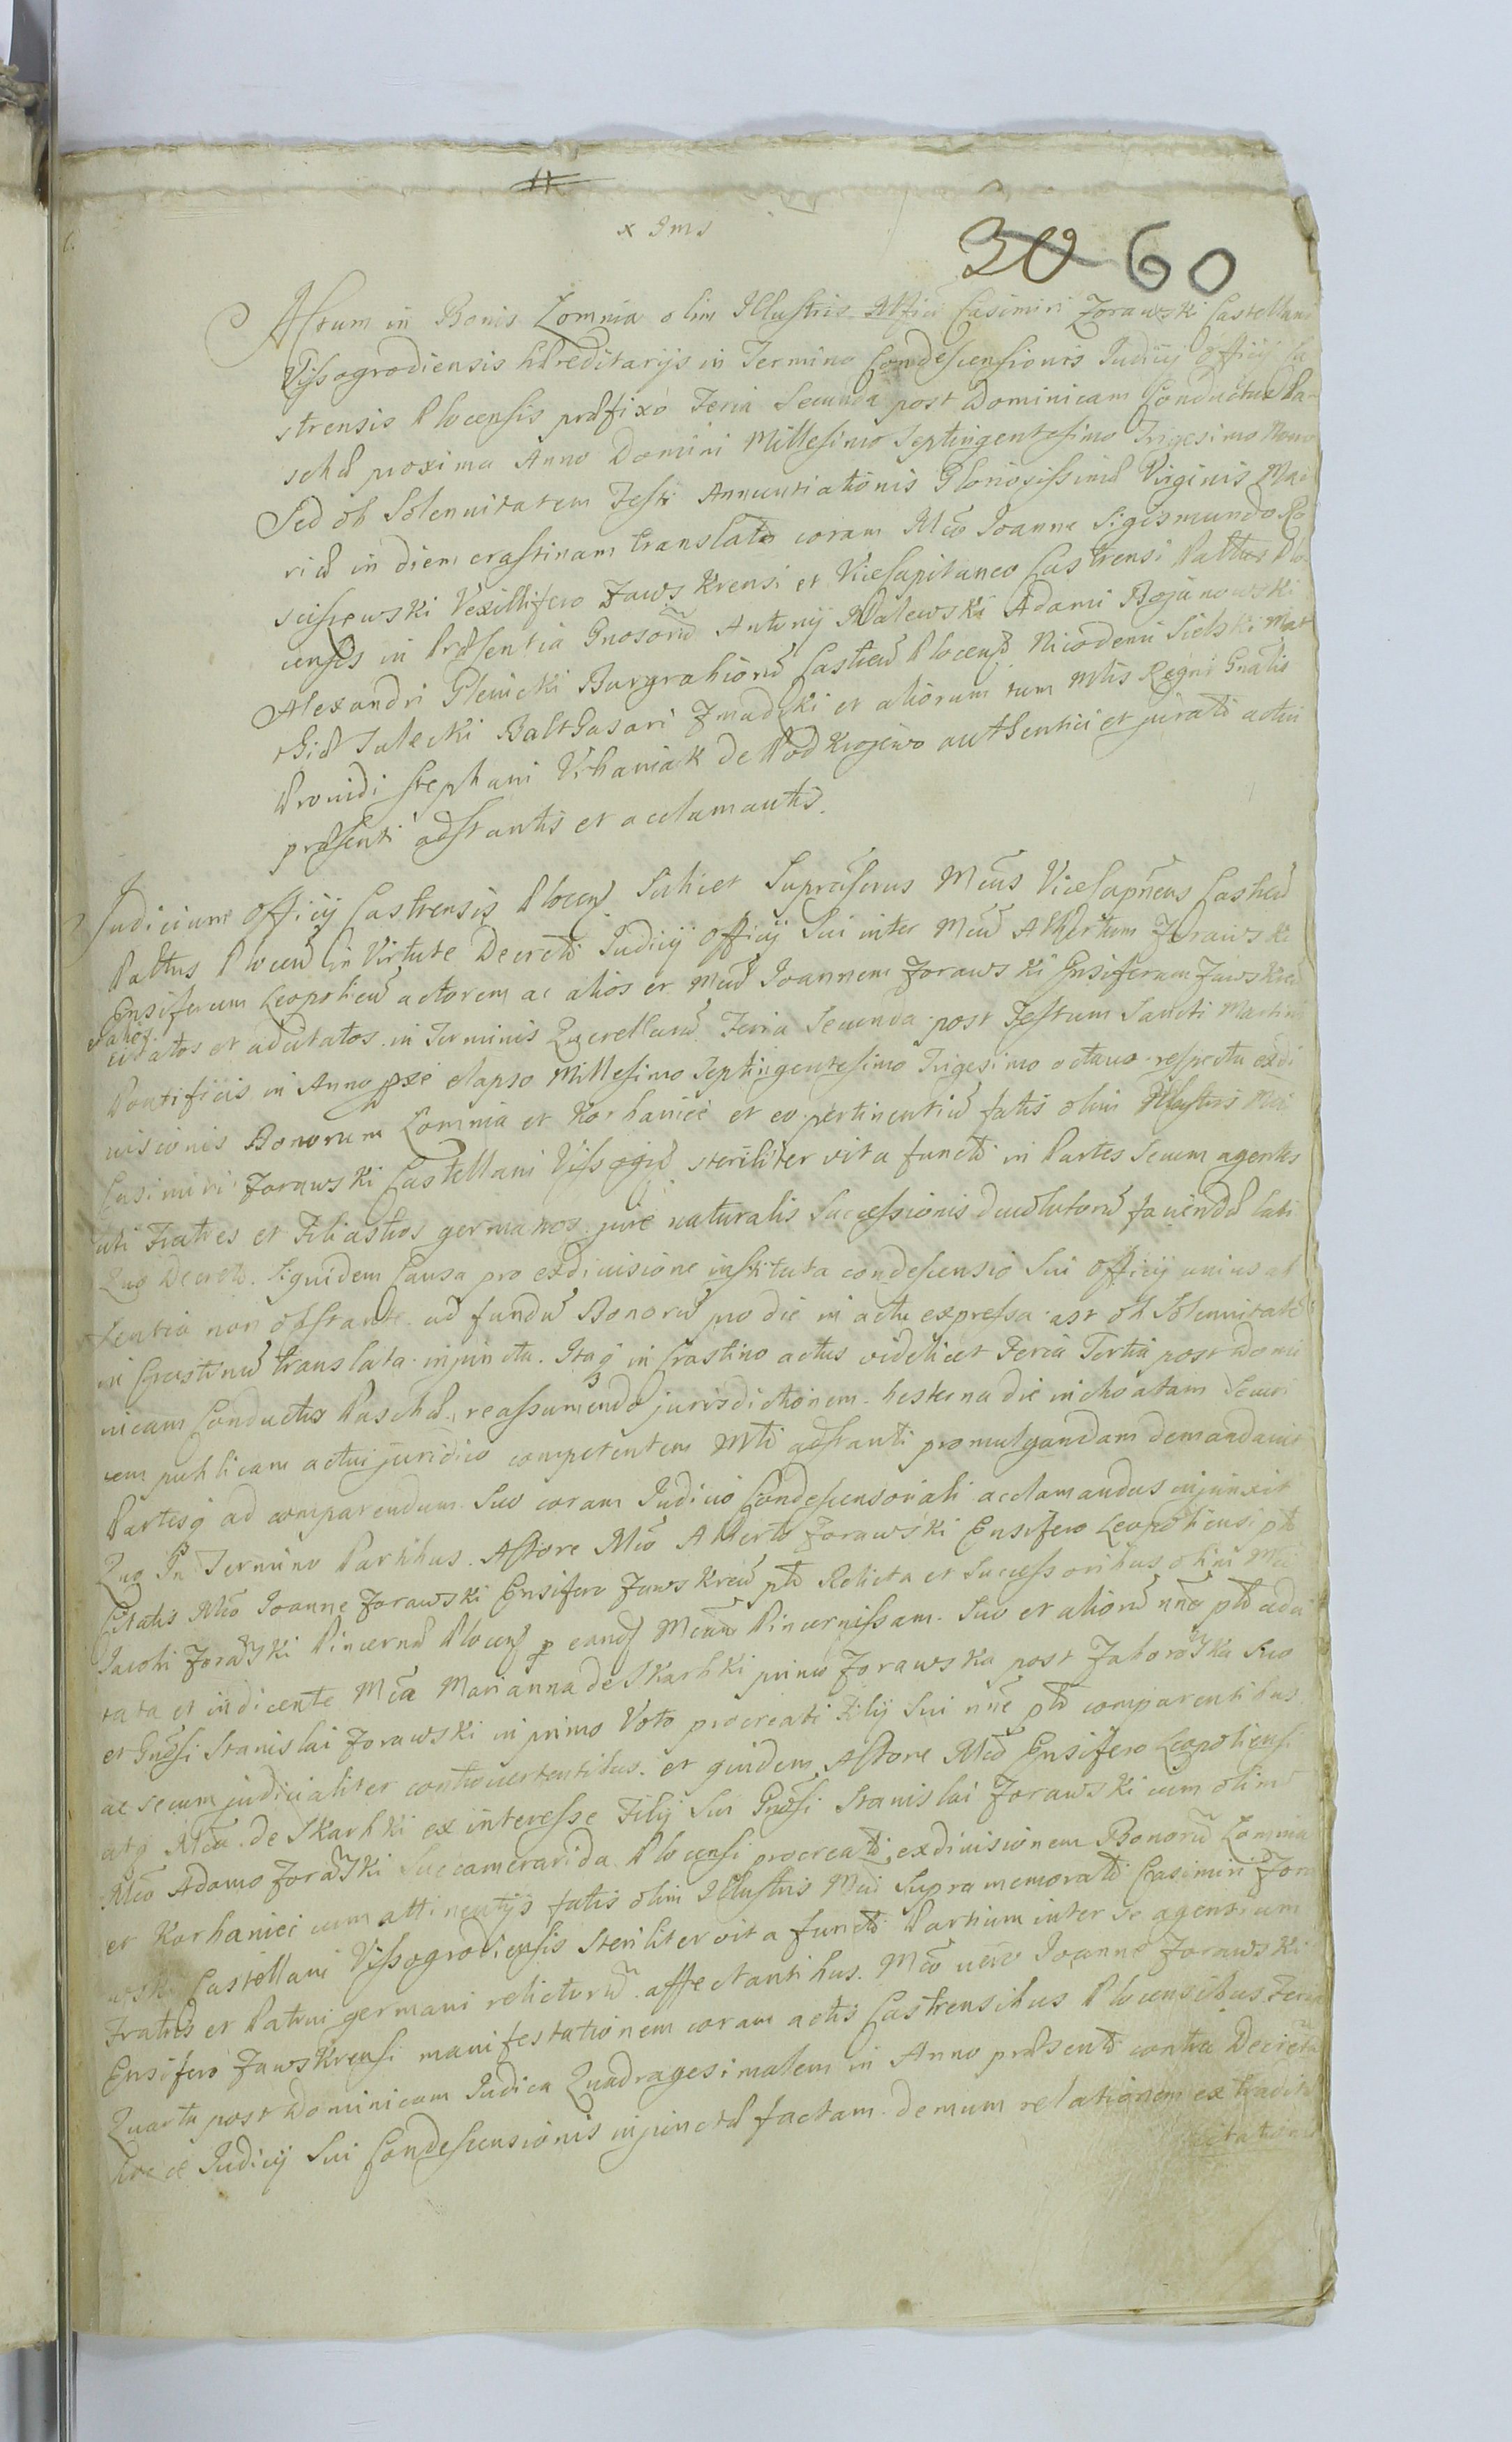 x Jms
30 60
Actum in Bonis Łomnia olim Illustris Mfici Casimiri Zorawski Castellani
Vissogrodiensis hæreditarijs in Termino Condescensionis Judicij Officij Ca
strensis Plocensis præfixo Feria Secunda post Dominicam Conductus Pa-
schæ proxima Anno Domini Millesimo Septingentesimo Trigesimo Nono
Sed ob Solennitatem Festi Annuntiationis Gloriosissimæ Virginis Ma
riæ in diem crastinam translato coram Mco Joanne Sigismundo Ro
sciszewski Vexillifero Zawskrensi et Vicecapitaneo Castrensi Pallus Plo-
censis in Præsentia Gnosorũ Antonij Adami Bojanowski
Alexandri Glewicki Burgrabiorũ Castreñ Plocensiũ Nicodemi Sielski
Balthasari et aliorum tum Mtlis Regni Gnalis
Providi Stephani Urbaniak de Podkrojewo authentici et jurati actui
præsenti adstantis et acclamantis.
Judicium Officij Castrensis Plocens Scilicet Suprascrus Mcus Vicecapneus Castreñ
Pallus Ploceñ in Virtute Decreti Judicij Officij Sui inter Mcũ Albertum Zorawski
Ensiferum Leopolieñ actorem ac alios et Mcũ Joannem Zorawski Ensiferum Zawskreñ
et alios
citatos et adcitatos in Terminis Querellarũ Feria Secunda post Festum Sancti Martini
Pontificis in Anno pxe elapso Millesimo Septingentesimo Trigesimo octavo respectu exdi
visionis Bonorum Łomnia et Korbaniec et eo pertinentiũ fatis olim Illustris Mci
Casimiri Zorawski Castellani Vissogrũ steriliter vita functi in Partes Secum agentes
uti Fratres et Filiastros germanos jure naturalis Successionis devolutorũ faciendæ lati
Quo Decreto Siquidem Causa pro exdivisione instituta condescensio Sui Officij unius ab
sentia non obstante ad fundũ Bonorũ pro die in actu expressa ast ob Solennitatẽ
in Crastinũ translata injuncta. Itaq in Crastino actus videlicet Feria Tertia post Domi
nicam Conductus Paschæ, reassumendo jurisdictionem hesterna die inchoatam Securi
tatem publicam actui juridico competentem Mtli adstanti promulgandam demandavit
Partesq ad comparendum Suo coram Judicio Condescensoriali acclamandas injunxit
Quo In Termino Partibus. Actore Mco Alberto Zorawski Ensifero Leopoliensi pto
Citatis Mco Joanne Zorawski Ensifero Zawskreñ pto Relicta et Successoribus olim Mci
Jacobi Zorawski Pincernæ Plocens p eand Mcam Pincernissam. Suo et aliorũ nñe pto adci
tata et indicente Mca Marianna de Skarbki primo Zorawska post Zaborowska Suo
et Gnosi Stanislai Zorawski in primo Voto procreati Filij Sui nñe pto comparentibus
ac secum judicialiter controvertentibus. et quidem Actore Mco Ensifero Leopoliensi
atq Mca de Skarbki ex interesse Filij Sui Gnosi Stanislai Zorawski cum olim
Mco Adamo Zorawski Succamerarida Plocensi procreati, exdivisionem Bonorũ Łomnia
et Korbaniec cum attinentijs fatis olim Illustris Mci Supra memorati Casimiri Zora
wski Castellani Vissogrodiensis steriliter vita functi Partium inter se agentium
Fratris et Patrui germani relictorũ affectantibus. Mco vero Joanne Zorawski
Ensifero Zawskrensi manifestationem coram actis Castrensibus Plocensibus Feria
Quarta post Dominicam Judica Quadragesimalem in Anno præsenti contra Decretũ
Judicij Sui Condescensionis injunctæ factam. demum relationem extraditæ
citationis